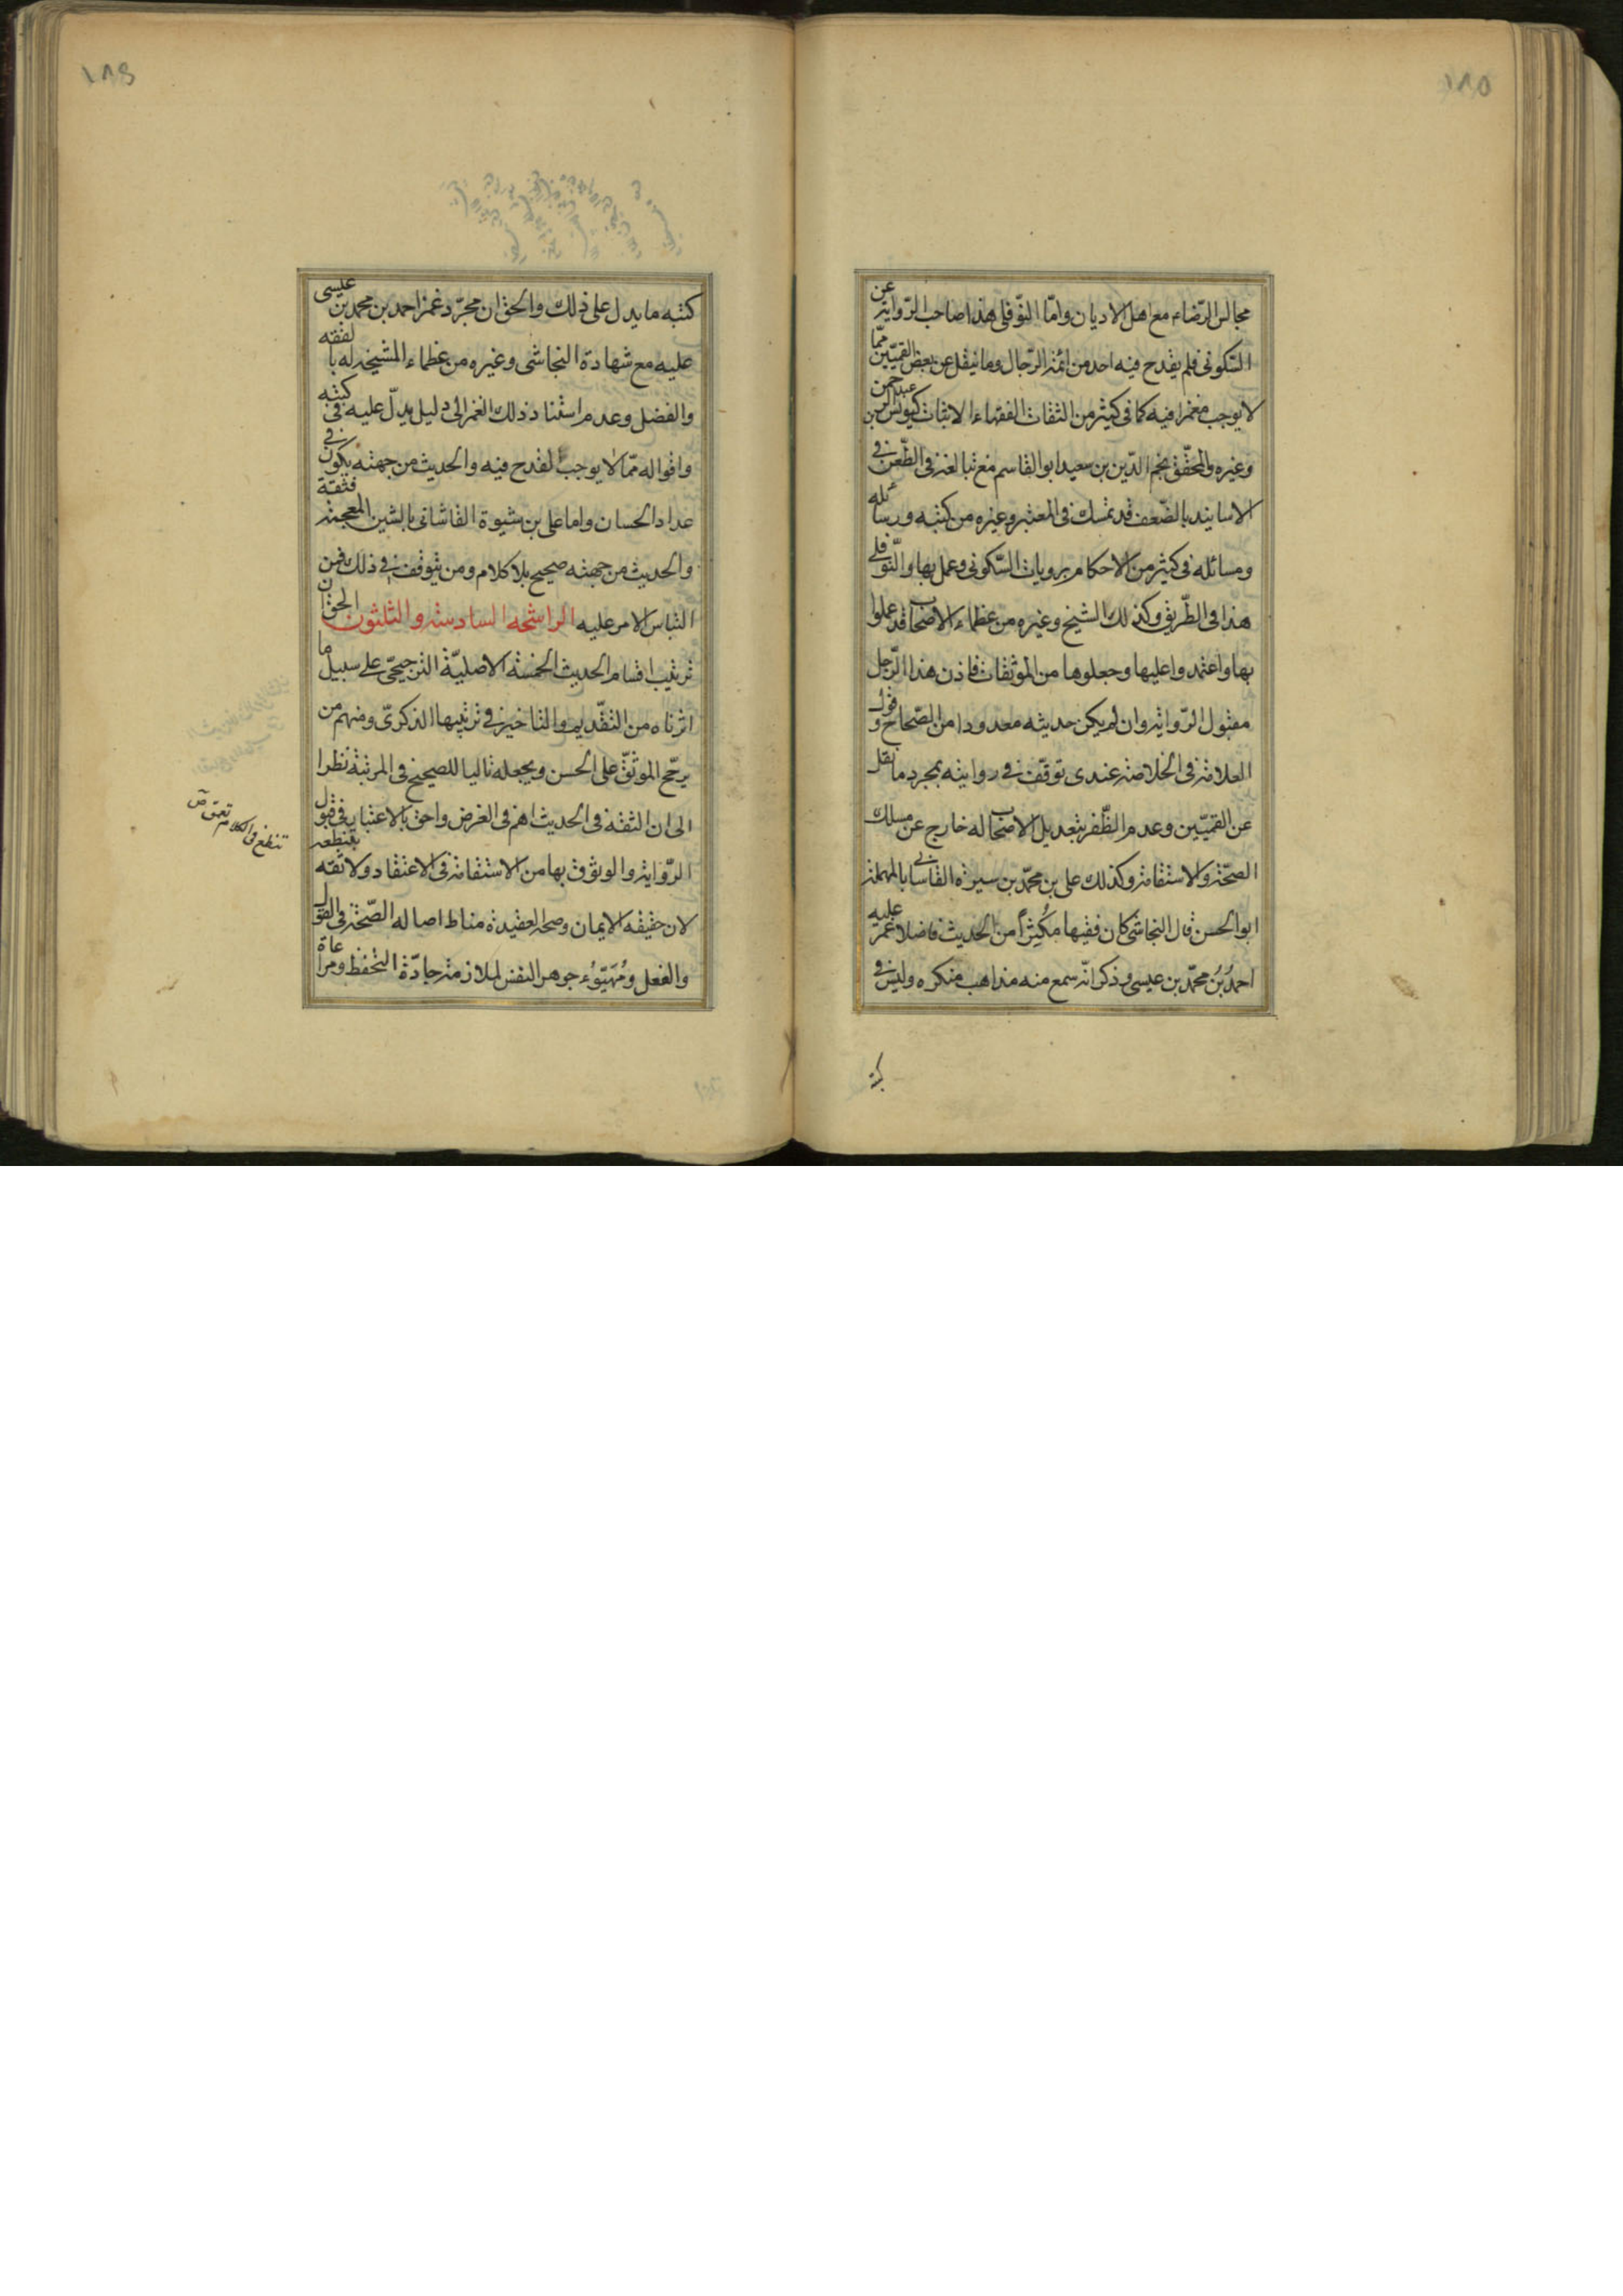 ١٨٥
مجالس الرّضاء مع اهل الاديان وامّا النّوفلى هذا صاحب الرّواية عن
السّكونى فلم يقدح فيه احد من ائمة الرّجال وما نيقل عن بعض القميّين ممّا
لا يوجب مغمزا فيه كما فى كثير من الثقات الفقهاء الاثبات كيونس بن عبد الرحمن
وغيره والمحقّق نجم الدّين بن سعيد ابو القاسم مع تبالغه فى الطّعن فى
الاسانيد بالضّعف قد تمسك فى المعتبر وغيره من كتبه ورسائله
ومسائله فى كثير من الاحكام بروايات السّكونى وعمل بها والنّوفلى
هذا فى الطّريق وكذلك الشيخ وغيره من عظماء الاصحاب قد عملوا
بها واعتمدوا عليها وجعلوها من الموثقات فاذن هذا الرّجل
مقبول الرّواية وان لم يكن حديثه معدودا من الصّحاح وقول
العلامة فى الخلاصة عندى توقّف فى روايته بمجرد ما نقل
عن القميّين وعدم الظّفر بتعديل الاصحاب له خارج عن مسلك
الصحّة والاستقامة وكذلك على بن محمّد بن سيرة القاسانى بالمهملة
ابو الحسن قال النجاشى كان فقيها مكثراً من الحديث فاضلا غمز عليه
احمدُ بنُ محمّد بن عيسى وذكر انّه سمع منه مذاهب منكره وليس فى
كتبه
١٨٦
كتبه ما يدل على ذلك والحق ان مجرّد غمز احمد بن محمد بن عيسى
عليه مع شهادة النجاشى وغيره من عظماء المشيخه له بالفقه
والفضل وعدم استناد ذلك الغمز الى دليل يدلّ عليه فى كتبه
واقواله ممّا لا يوجب القدح فيه والحديث من جهته يكون فى
عداد الحسان واما على بن شيرة القاشانى بالشين المعجمة فثقة
والحديث من جهته صحيح بلا كلام ومن يتوقف فى ذلك فمن
التباس الامر عليه الراشحه السادسة والثلثون الحق ان
ترتيب اقسام الحديث الخمسة الاصليّة الترجيحى على سبيل ما
اثرناه من التقديم والتاخير فى ترتيبها الذكرىّ ومنهم من
يرجّح الموثّق على الحسن ويجعله تاليا للصحيح فى المرتبة نظرا
الى ان الثقة فى الحديث اهم فى الغرض واحق بالاعتبار فى قبول
الرّواية والوثوق بها من الاستقامة فى الاعتقاد ولا ثقه
لان حقيقه الايمان وصحة العقيدة مناط اصاله الصّحة فى القول
والفعل ومُهَيّوُء جوهر النفس لملازمة جادّة التحفظ ومراعاة
تنطع فى الكلام تعمق